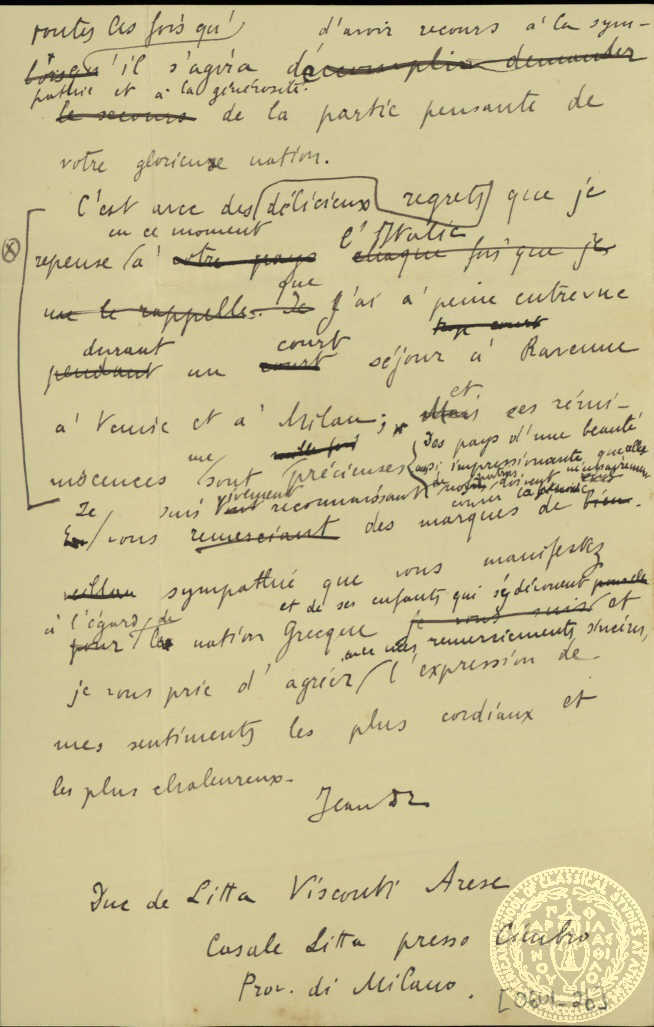 toutes les fois qu' d'avoir recours à la sym-
lorsqu'il s'agira d'accomplir demander
pathie et à la générosité.
le secours de la partie pensante de
votre glorieuse nation.
C'est avec des délicieux regrets que je
en ce moment l'Italie
repense à votre pays chaque fois que je
que
me le rappelle. Je j'ai à peine entrevue
trop court
durant court
pendant un court séjour à Ravenne
à Venise et à Milan; Mais et ces rémi-
niscences me sont précieuses
des pays d'une beauté
aussi impressionnante
Je suis vivement reconnaissant
En vous remerciant des marques de bien-
veillan sympathie que vous manifestez
à l'égard de et de ses enfants qui se dévouent
pour la nation Grecque je vous suis et
avec mes remerciements sincères,
je vous prie d'agréer l'expression de
mes sentiments les plus cordiaux et
les plus chaleureux.
Jean Dr
Duc de Litta Visconti Arese
Casale Litta presso Cimbro
Prov. di Milano.